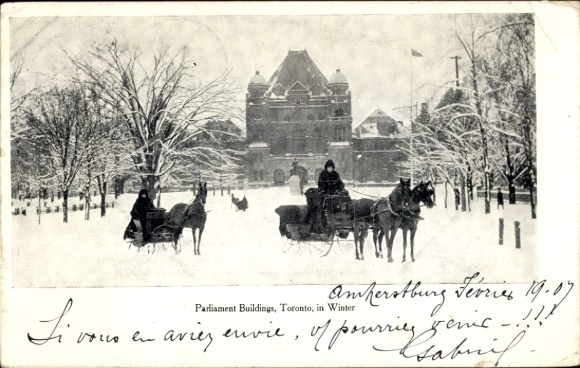 Parliament Buildings, Toronto, in Winter
Amherstburg Février 19-07
Si vous en aviez envie, v/ pourriez venir - !!!
Gabriel